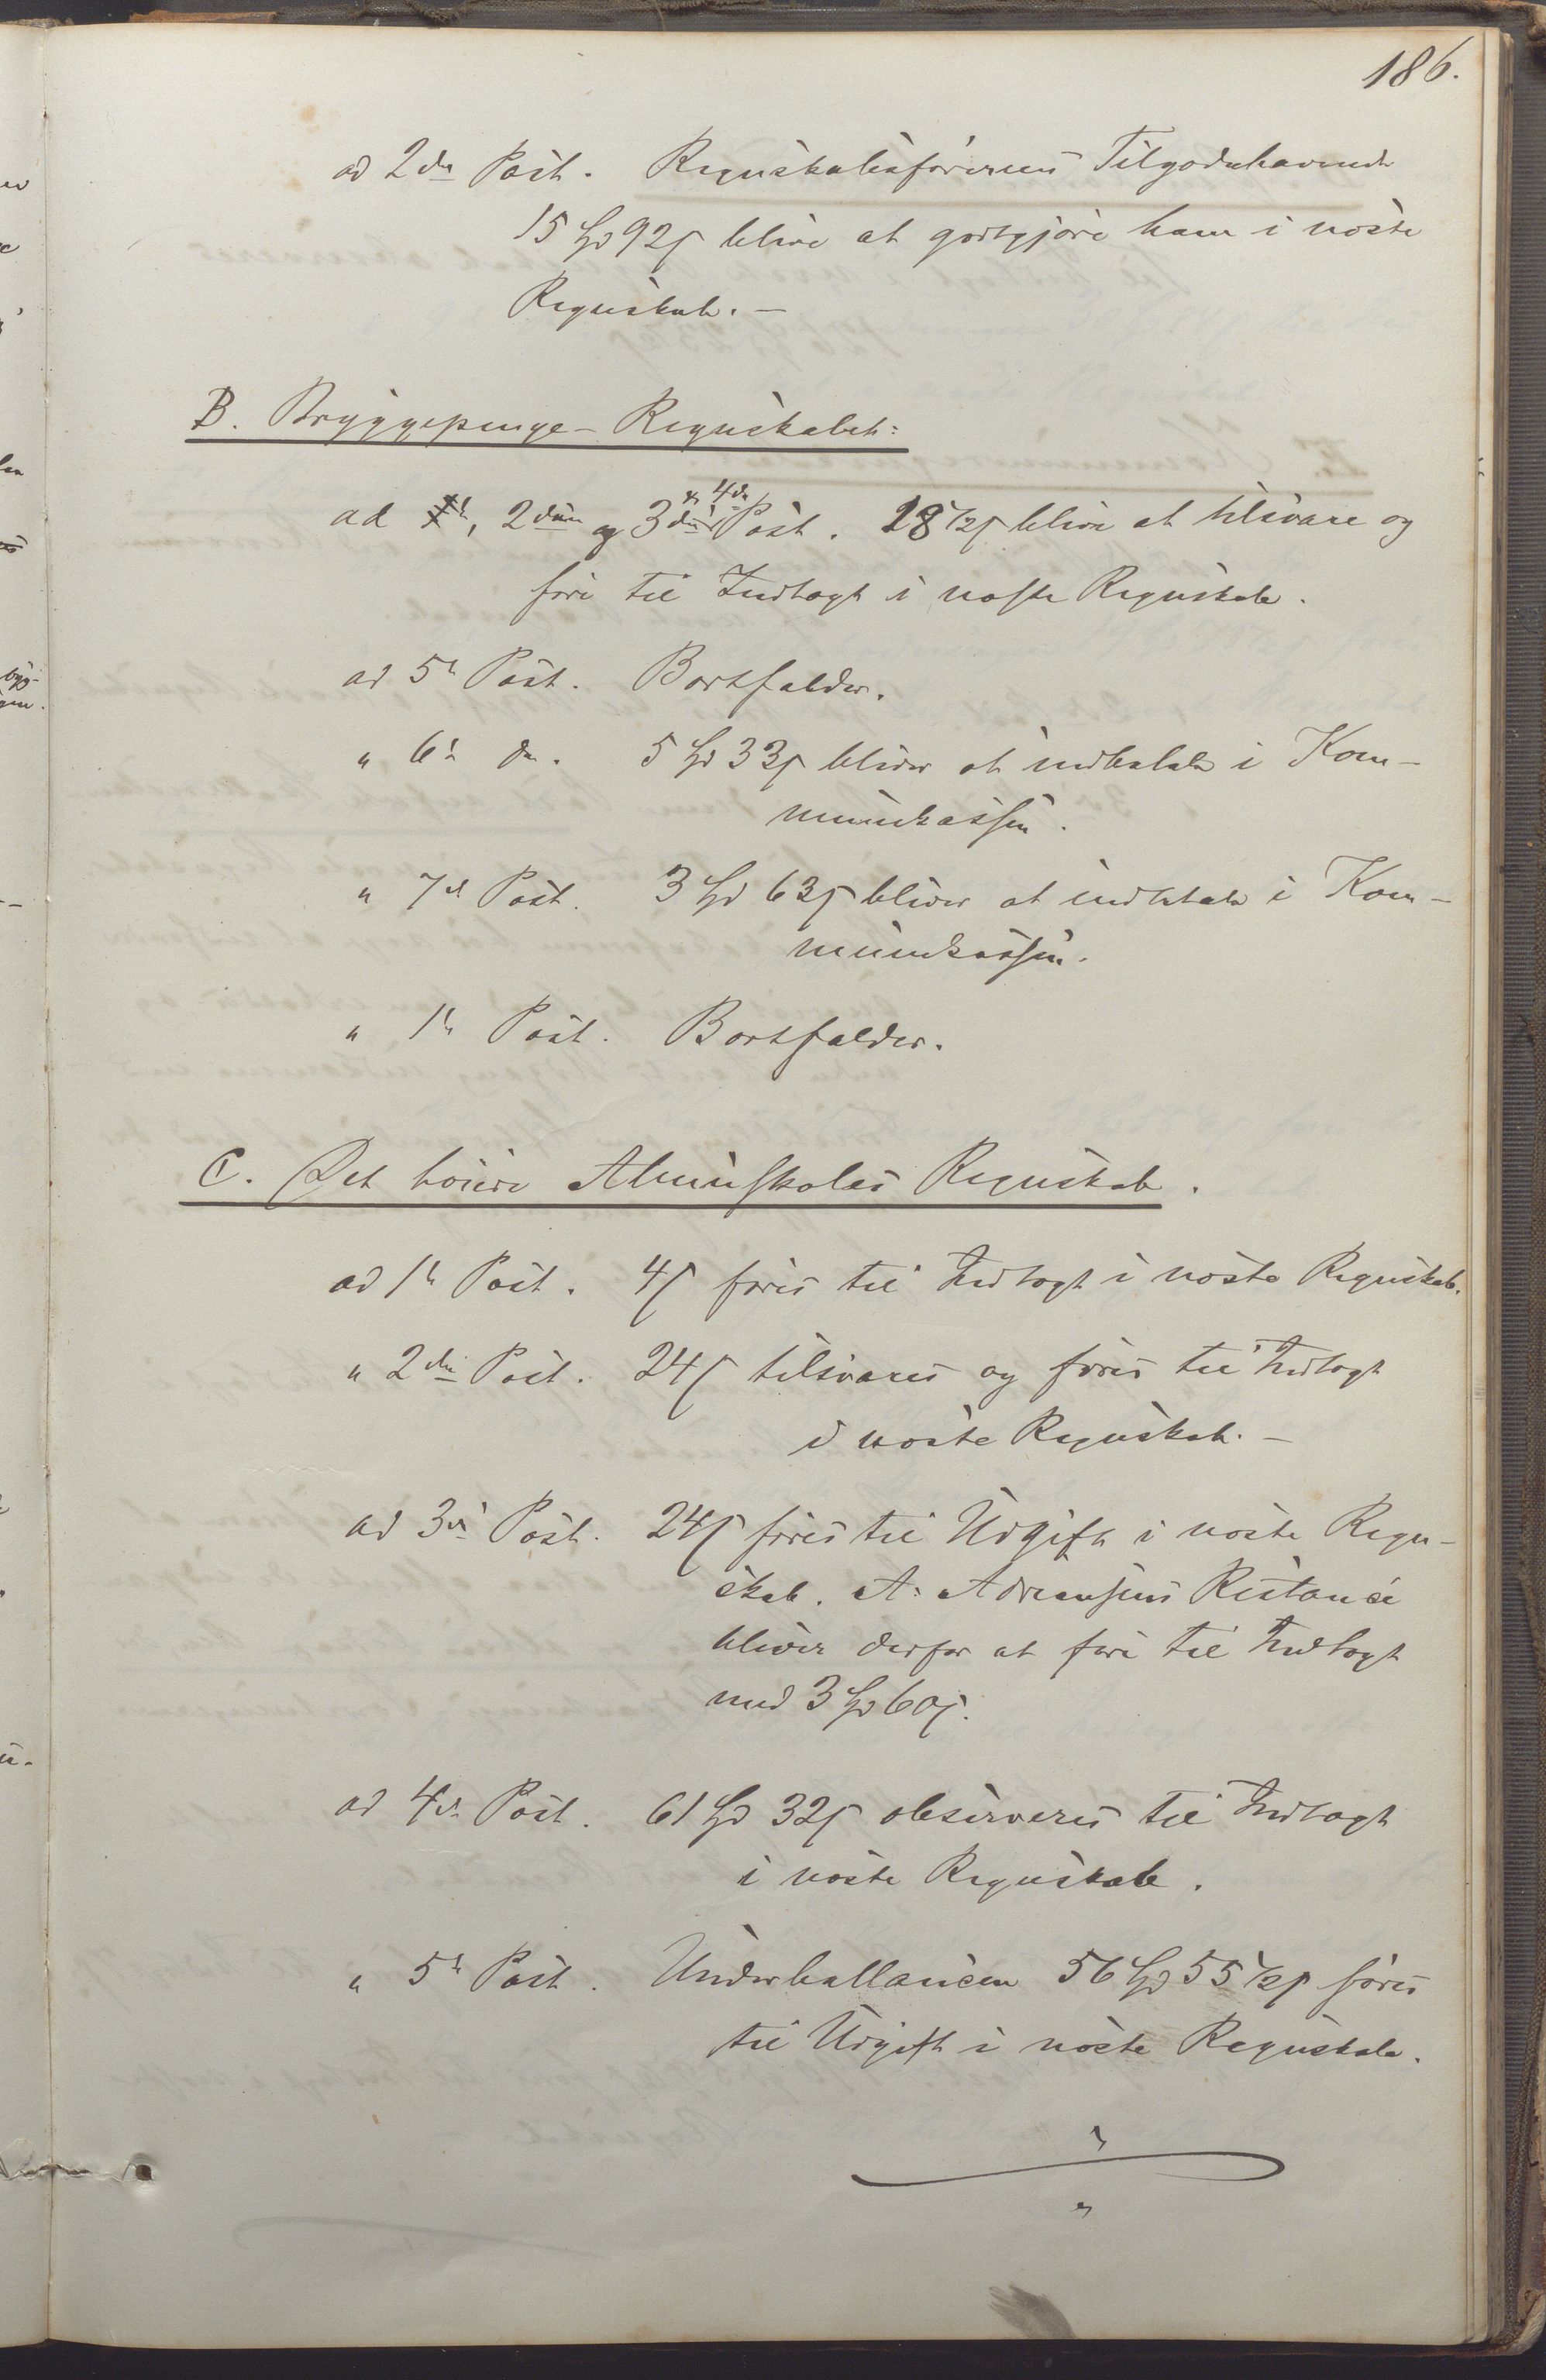 186.
ad 2den Post. Regnskabsførerens Tilgodehavende
15 Spd 92 ß blive at godtgjøre ham i næste
Regnskab. —
B. Bryggepenge-Regnskabet:
ad 2den og 3die & 4de Post. 28 1/2 ß blive at tilsvare og
føre til Indtægt i næste Regnskab.
ad 5te Post. Bortfalder.
" 6te do. 5 Spd 33 ß bliver at indbetale i Kom-
munekassen.
" 7de Post. 3 Spd 63 ß bliver at indbetale i Kom-
munekassen.
" 1te Post. Bortfalder.
C. Det høiere Almueskoles Regnskab.
ad 1te Post. 4 ß føres til Indtægt i næste Regnskab.
" 2den Post. 24 ß tilsvares og føres til Indtægt
i næste Regnskab. —
ad 3die Post. 24 ß føres til Udgift i næste Regn-
skab. A. Adriansens Restance
bliver derfor at føre til Indtægt
med 3 Spd 60 ß.
ad 4de Post. 61 Spd 32 ß observeres til Indtægt
i næste Regnskab.
" 5te Post. Underballancen 56 Spd 55 1/2 ß føres
til Udgift i næste Regnskab.